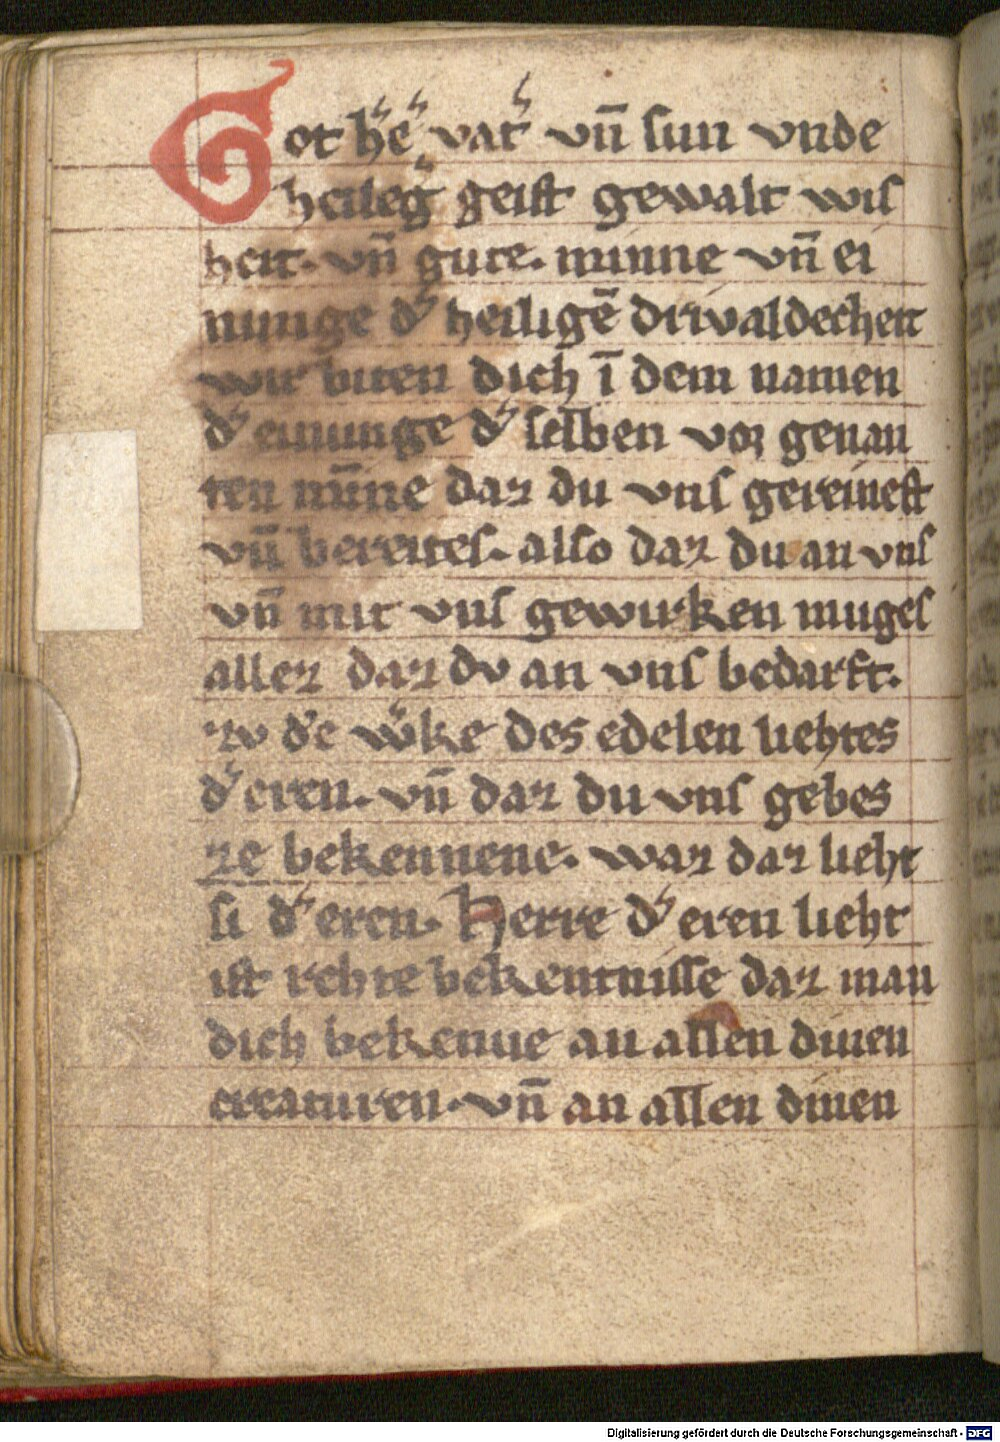 Got h̾e̾ vat̾ vn̄ sun vnde
heileg̾ geist gewalt wis
heit. vn̄ gute. minne vn̄ ei
nunge d̾ heiligē drivaldecheit
wir biten dich ī dem namen
d̾ einunge d̾ selben vor genan
ten mīne daz du vns gereinest
vn̄ bereites. also daz du an vns
vn̄ mit vns gewurken muges
allez daz dv an vns bedarft.
zv d̾e w̾ke des edelen liehtes
d̾ eren. vn̄ daz du vns gebes
ze bekennene. waz daz lieht
si d̾ eren. Herre d̾ eren lieht
ist rehte bekentnisse daz man
dich bekenne an allen dinen
creaturen. vn̄ an allen dinen
Digitalisierung gefördert durch die Deutsche Forschungsgemeinschaft - DFG